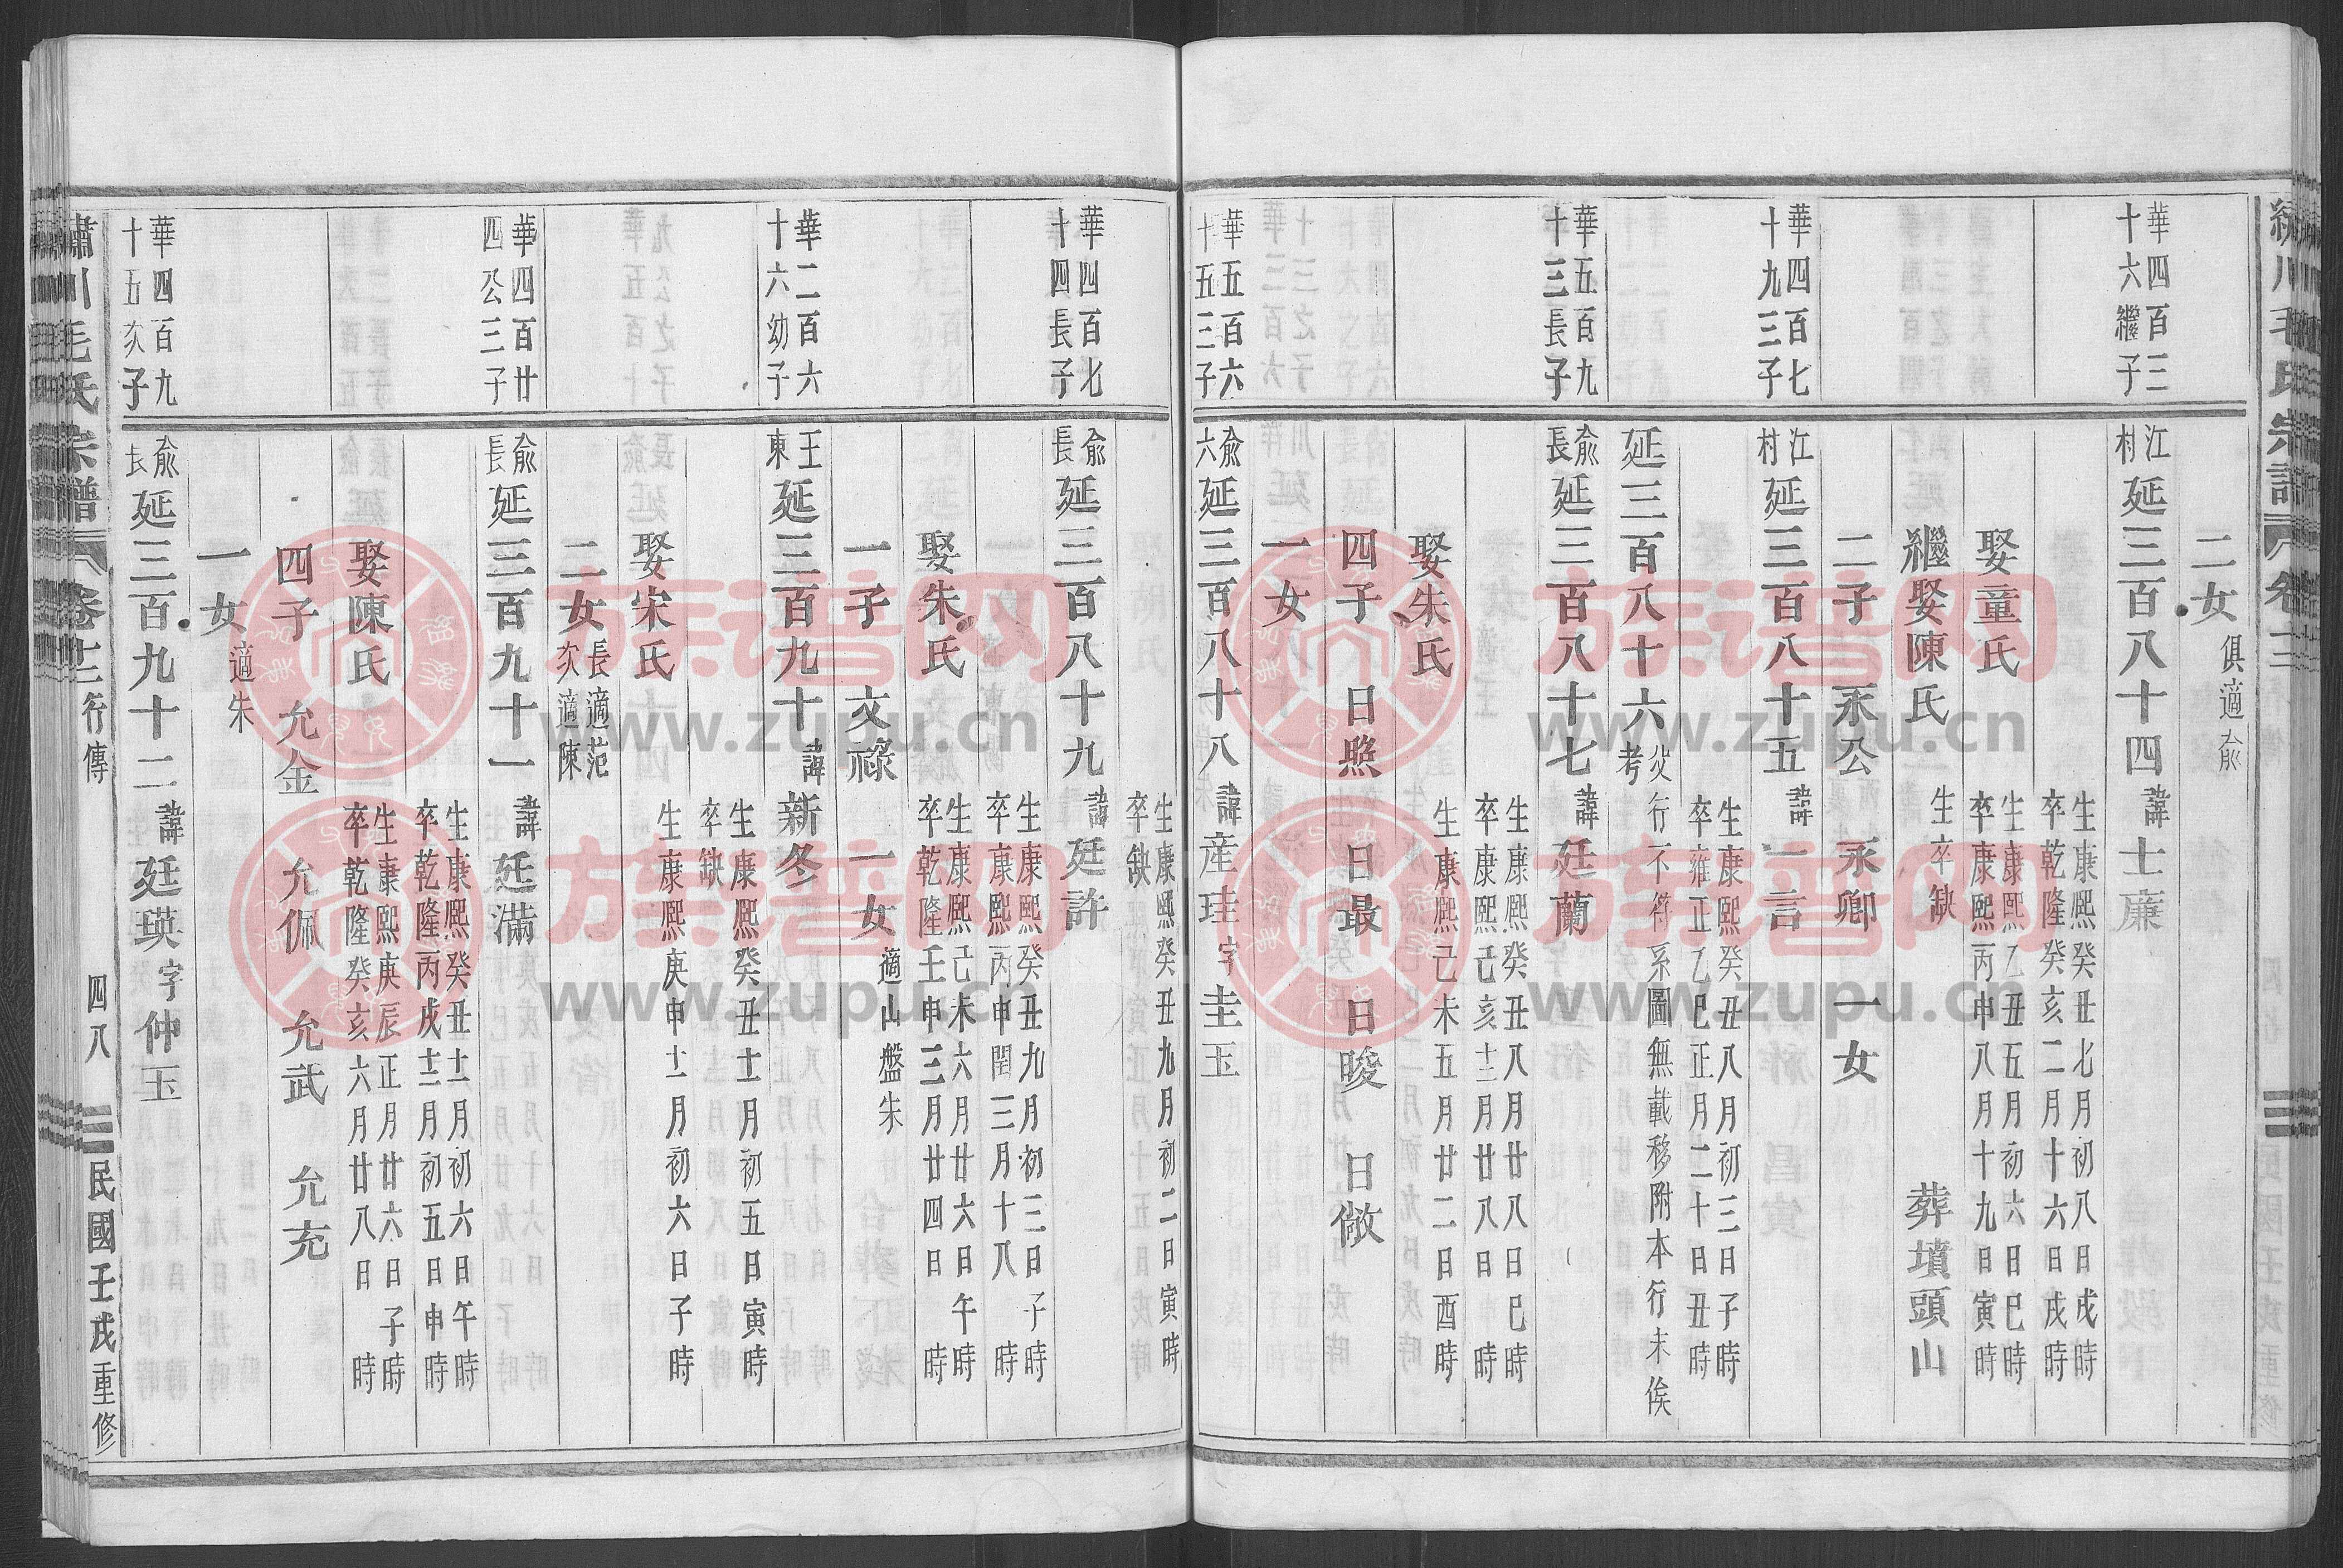 二女俱適俞
華四百三十六繼子
江村延三百八十四諱士廉
生康熙癸丑七月初八日戌時
卒乾隆癸亥二月十六日戌時
娶童氏
生康熙乙丑五月初六日巳時
卒康熙丙申八月十九日寅時
繼娶陳氏生卒缺 葬墳頭山
二子 永公 永卿 一女
華四百七十九三子
江村延三百八十五諱一言
生康熙癸丑八月初三日子時
卒雍正乙巳正月二十日丑時
延三百八十六
行不符系圖無載移附本行末俟攷考
華五百九十三長子
俞長延三百八十七諱廷蘭
生康熙癸丑八月廿八日巳時
卒康熙己亥十二月廿八日 時
娶朱氏
生康熙己未五月廿二日酉時
四子 日煦 日最 日晙 日敞
一女
華五百六十五三子
俞六延三百八十八諱産珪字圭玉
生康熙癸丑九月初二日寅時
卒缺
華四百七十四長子
俞長延三百八十九諱廷許
生康熙癸丑九月初三日子時
卒康熙丙申閏三月十八 時
娶朱氏
生康熙己未六月廿六日午時
卒乾隆壬申三月廿四日 時
一子 文祿 一女適山盤朱
華二百六十六幼子
王東延三百九十諱新冬
生康熙癸丑十一月初五日寅時
卒缺
娶宋氏
生康熙庚申十一月初六日子時
二女長適范次適陳
華四百廿四公三子
俞長延三百九十一諱廷滿
生康熙癸丑十二月初六日午時
卒乾隆丙戌十二月初五日申時
娶陳氏
生康熙庚辰正月廿六日子時
卒乾隆癸亥六月廿八日 時
四子 允金 允佩 允武 允充
一女適朱
華四百九十五次子
俞長延三百九十二諱廷瑛字仲玉
繡川毛氏宗譜 卷十二行傳 四八 民國壬戌重修
族谱网
www.zupu.cn
族谱网
www.zupu.cn
族谱网
www.zupu.cn
族谱网
www.zupu.cn